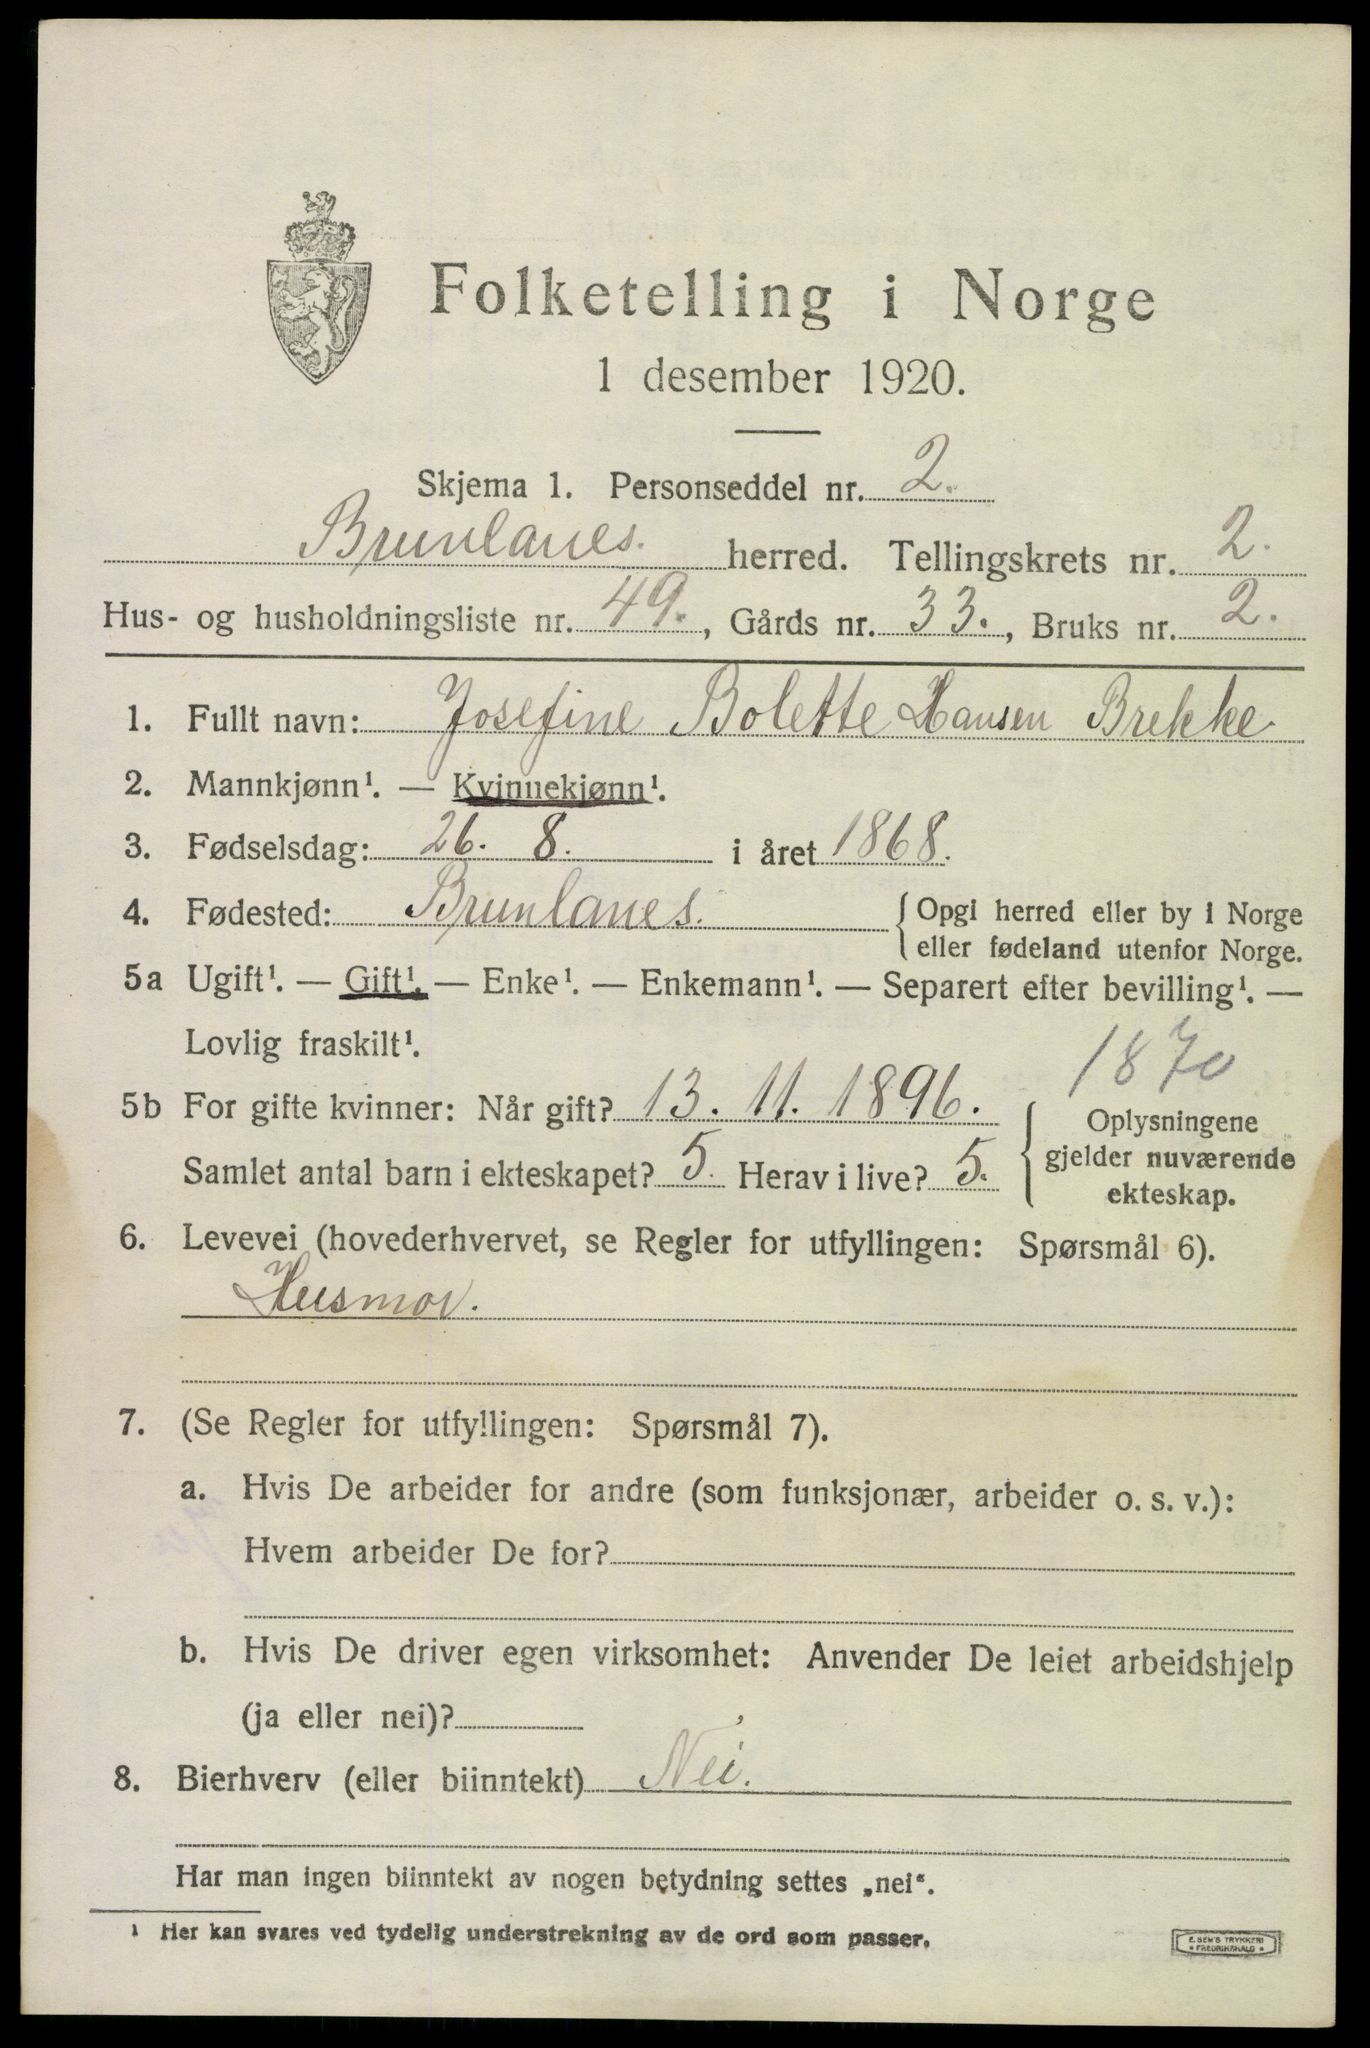 Folketelling i Norge
1 desember 1920.
Skjema 1. Personseddel nr. 2.
Brunlanes. herred. Tellingskrets nr. 2.
Hus- og husholdningsliste nr. 49., Gårds nr. 33., Bruks nr. 2.
1. Fullt navn: Josefine Bolette Hansen Brekke
2. Mannkjønn¹. — Kvinnekjønn¹.
3. Fødselsdag: 26. 8. i året 1868.
4. Fødested: Brunlanes. { Opgi herred eller by i Norge
eller fødeland utenfor Norge.
5a Ugift¹. — Gift¹. — Enke¹. — Enkemann¹. — Separert efter bevilling¹. —
Lovlig fraskilt¹.
1870
5b For gifte kvinner: Når gift? 13. 11. 1896.
Samlet antal barn i ekteskapet? 5. Herav i live? 5.
{ Oplysningene
gjelder nuværende
ekteskap.
6. Levevei (hovederhvervet, se Regler for utfyllingen: Spørsmål 6).
Husmor.
7. (Se Regler for utfyllingen: Spørsmål 7).
a. Hvis De arbeider for andre (som funksjonær, arbeider o. s. v.):
Hvem arbeider De for?
b. Hvis De driver egen virksomhet: Anvender De leiet arbeidshjelp
(ja eller nei)?
8. Bierhverv (eller biinntekt) Nei.
Har man ingen biinntekt av nogen betydning settes „nei“.
¹ Her kan svares ved tydelig understrekning av de ord som passer.
E. SEM'S TRYKKERI
* FREDRIKSHALD *